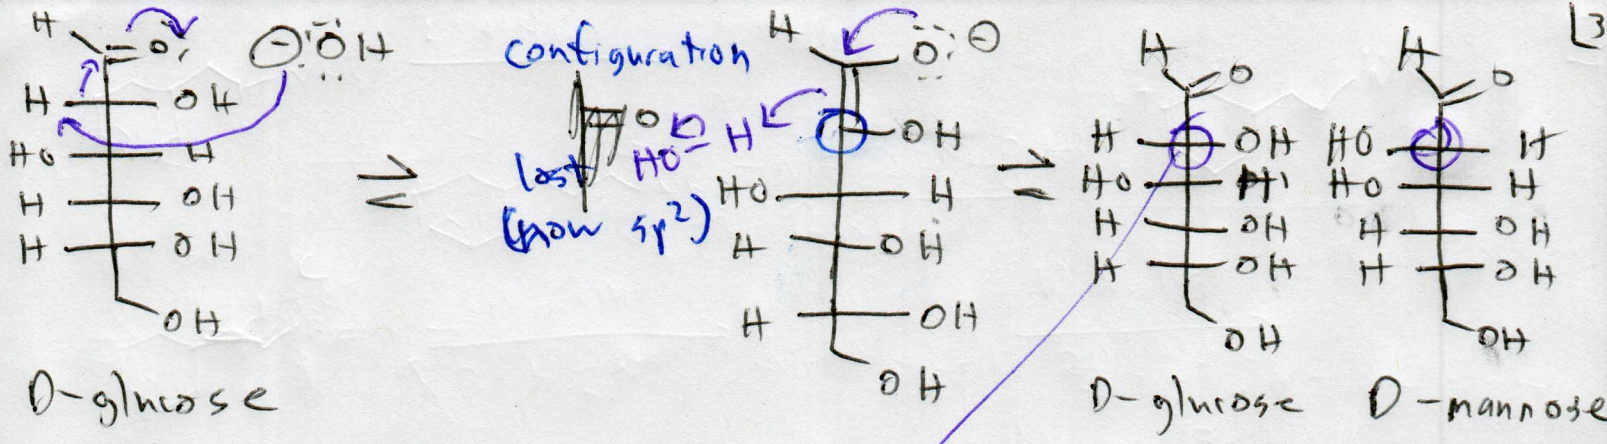 H
O:
⊖:ÖH
H
OH
HO
H
H
OH
H
OH
OH
D-glucose
⇌
configuration
lost
(now sp²)
O
HO⊖
H
H
O:⊖
OH
HO
H
H
OH
H
OH
OH
⇌
H
O
H
OH
HO
H
OH
H
OH
OH
D-glucose
H
O
HO
H
HO
H
H
OH
H
OH
OH
D-mannose